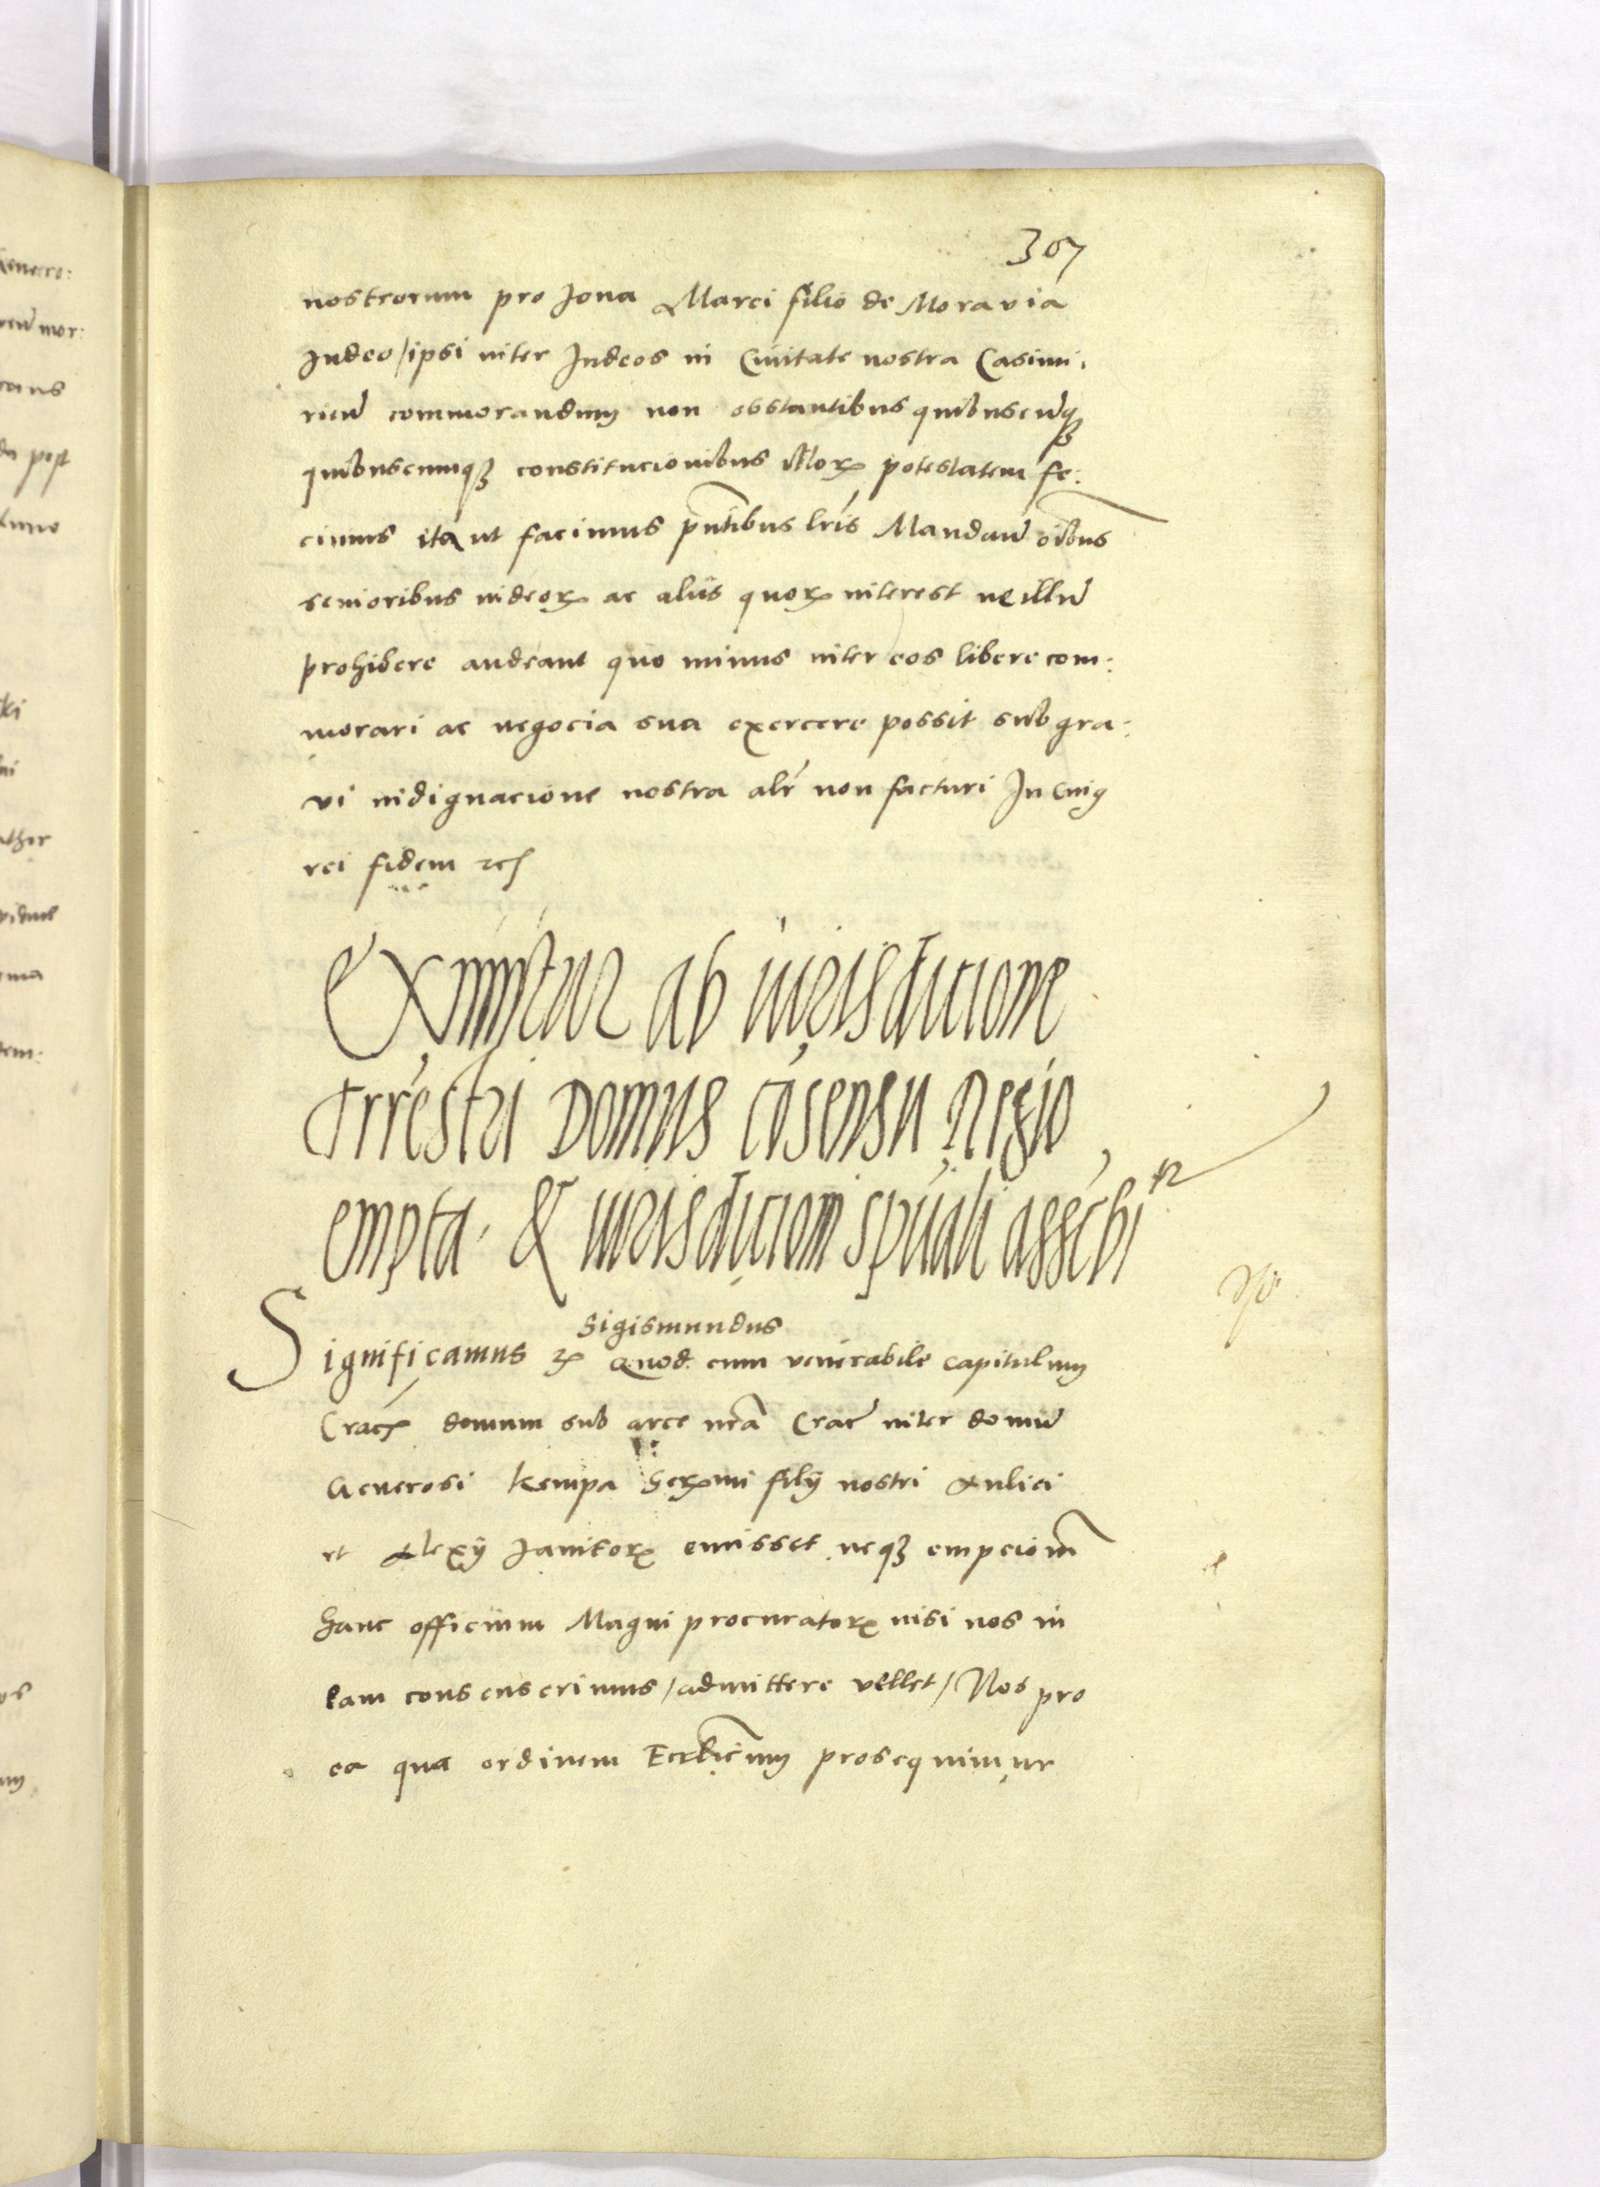 367
nostrorum pro Jona Marci filio de Moravia
Judeo / ipsi inter Judeos in Civitate nostra Casimi:
rien̄ commorandum non obstantibus quibuscūqꝫ
quibuscumqꝫ constitucionibus Illoꝝ potestatem fe:
cimus ita ut facimus pn̄tibus lr̄is Mandan̄ oībus
senioribus iudeoꝝ ac aliis quoꝝ interest ne illū
prohibere audeant quo minus inter eos libere com:
morari ac negocia sua exercere possit sub gra:
vi indignacione nostra alr̄ non facturi In cuiꝯ
rei fidem etc
Eximitur ab iurisdicione
Trrestri Domus cōsensu Regio
empta. & iurisdicioni spūali asscrbitr
Sigismundus
Significamus ꝛc Quod cum venerabile capitulum
Crac̄ domum sub arce nrā Crac̄ inter domū
Generosi Kempa Serᵐⁱ filij nostri Aulici
et Alexij Janitoꝝ emisset neqꝫ empcionē
hanc officium Magni procuratoꝝ nisi nos in
eam consenserimus / admittere vellet / Nos pro
ea qua ordinem Eccl̄icum prosequimur